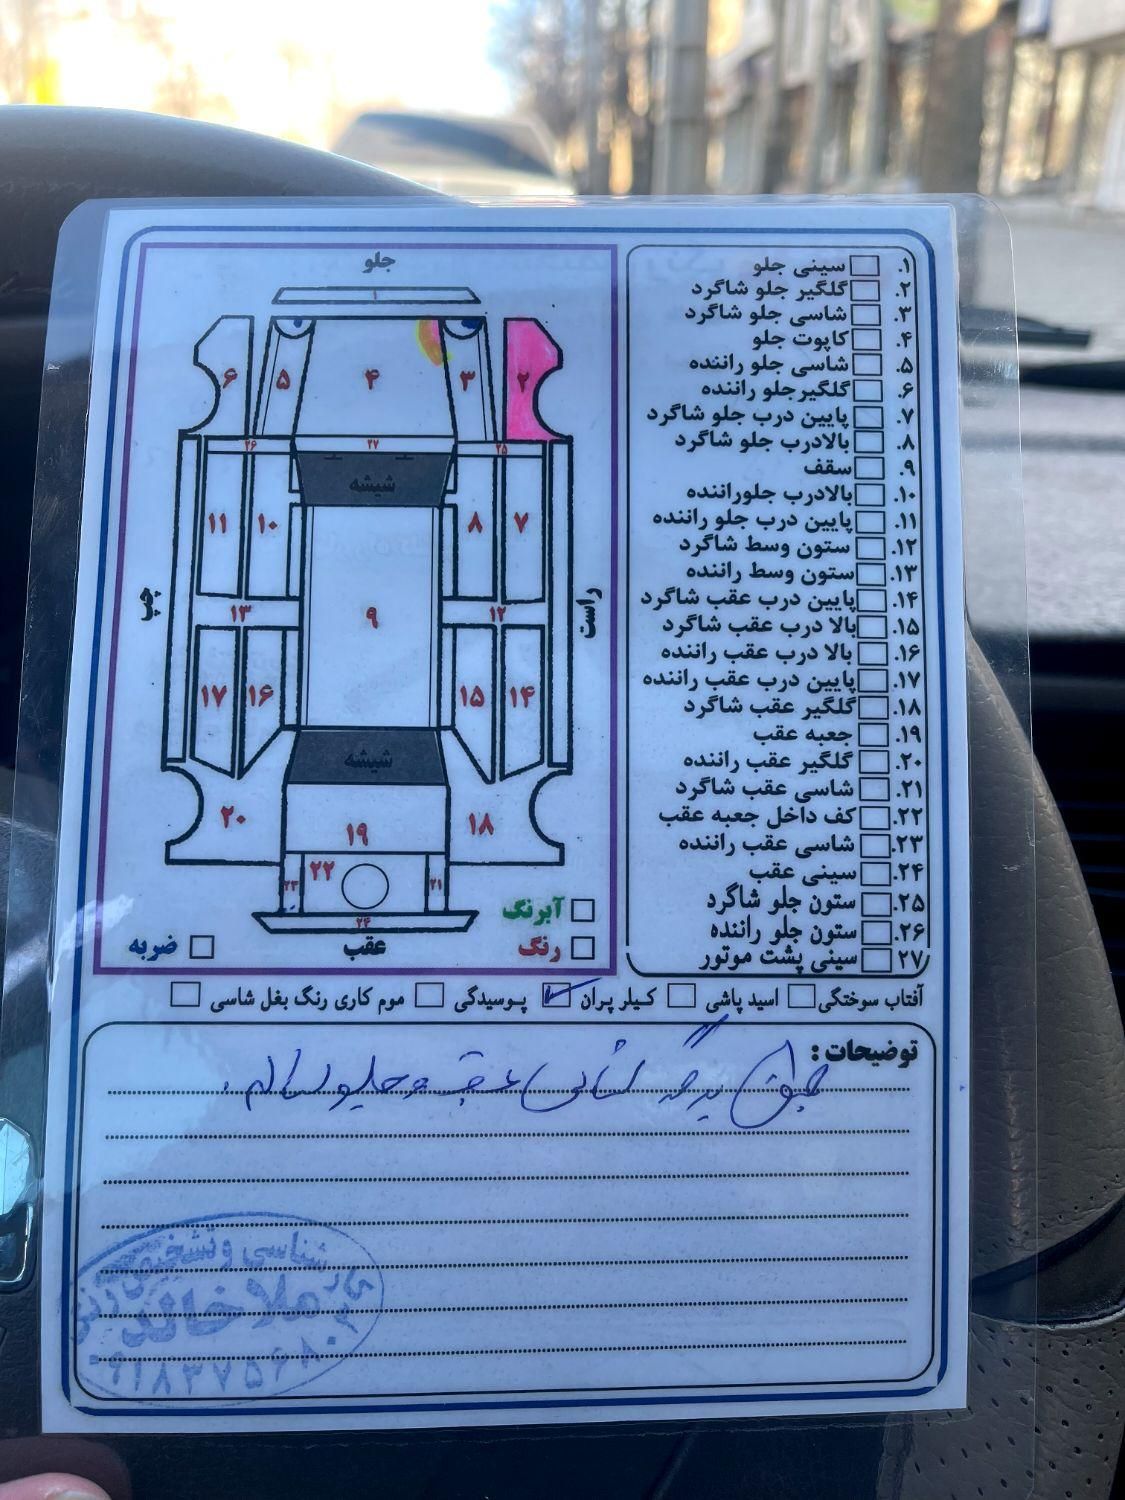 جلو
۱
۶
۵
۴
۳
۲
۲۶
۲۷
۲۵
شیشه
۱۱
۱۰
۸
۷
چپ
راست
۱۳
۹
۱۲
۱۷
۱۶
۱۵
۱۴
شیشه
۲۰
۱۹
۱۸
۲۳
۲۲
۲۱
۲۴
آبرنگ
رنگ
عقب
ضربه
۱. سینی جلو
۲. گلگیر جلو شاگرد
۳. شاسی جلو شاگرد
۴. کاپوت جلو
۵. شاسی جلو راننده
۶. گلگیرجلو راننده
۷. پایین درب جلو شاگرد
۸. بالادرب جلو شاگرد
۹. سقف
۱۰. بالادرب جلوراننده
۱۱. پایین درب جلو راننده
۱۲. ستون وسط شاگرد
۱۳. ستون وسط راننده
۱۴. پایین درب عقب شاگرد
۱۵. بالا درب عقب شاگرد
۱۶. بالا درب عقب راننده
۱۷. پایین درب عقب راننده
۱۸. گلگیر عقب شاگرد
۱۹. جعبه عقب
۲۰. گلگیر عقب راننده
۲۱. شاسی عقب شاگرد
۲۲. کف داخل جعبه عقب
۲۳. شاسی عقب راننده
۲۴. سینی عقب
۲۵. ستون جلو شاگرد
۲۶. ستون جلو راننده
۲۷. سینی پشت موتور
آفتاب سوختگی اسید پاشی کیلر پران پوسیدگی موم کاری رنگ بغل شاسی
توضیحات :
طبق برگه شاسی عقب و جلو سالم.